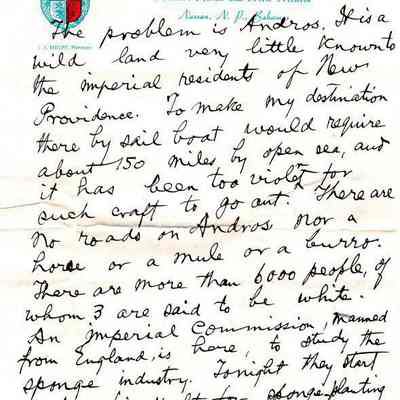 Nassau, N. P., Bahamas
The problem is Andros. It is a
wild land very little known to
the imperial residents of New
Providence. To make my destination
there by sail boat would require
about 150 miles by open sea, and
it has been too violent for
such craft to go out. There are
no roads on Andros nor a
horse or a mule or a burro.
There are more than 6000 people, of
whom 3 are said to be white.
An imperial Commission, manned
from England, is here, to study the
sponge industry. Tonight they start
for sponge planting